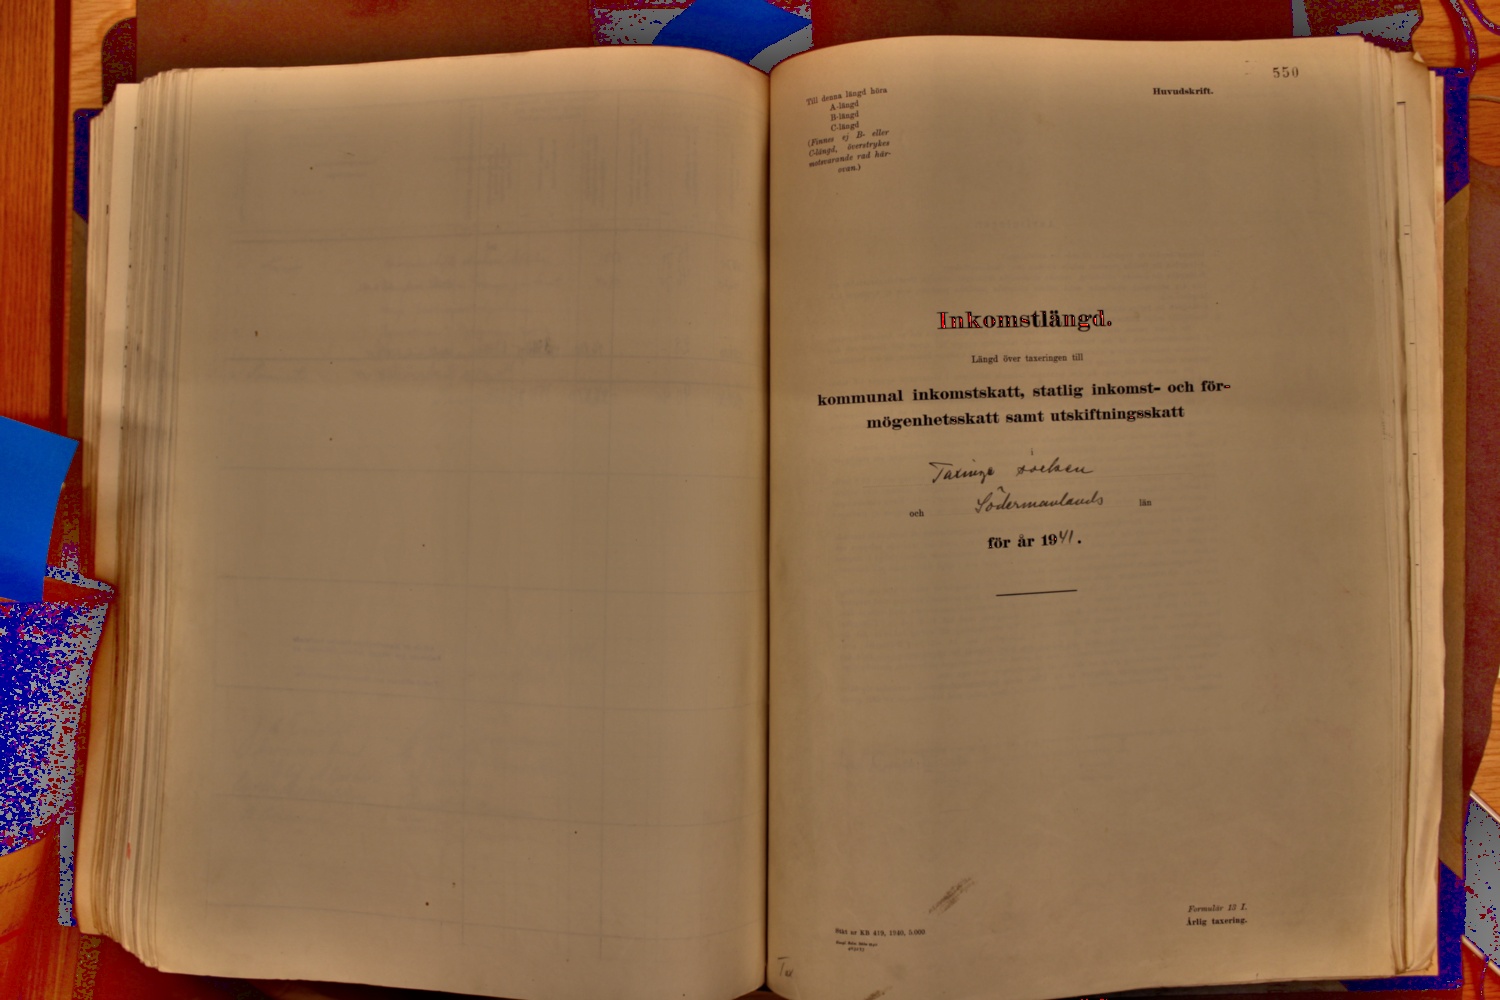 550
Huvudskrift.
Till denna längd höra
A-längd
B-längd
C-längd
(Finnes ej B- eller
C-längd, överstrykes
motsvarande rad här-
ovan.)
Inkomstlängd.
Längd över taxeringen till
kommunal inkomstskatt, statlig inkomst- och för-
mögenhetsskatt samt utskiftningsskatt
Taxinge socken
och Södermanlands län
för år 1941.
Formulär 13 I.
Årlig taxering.
nr KB 419, 1940, 5.000